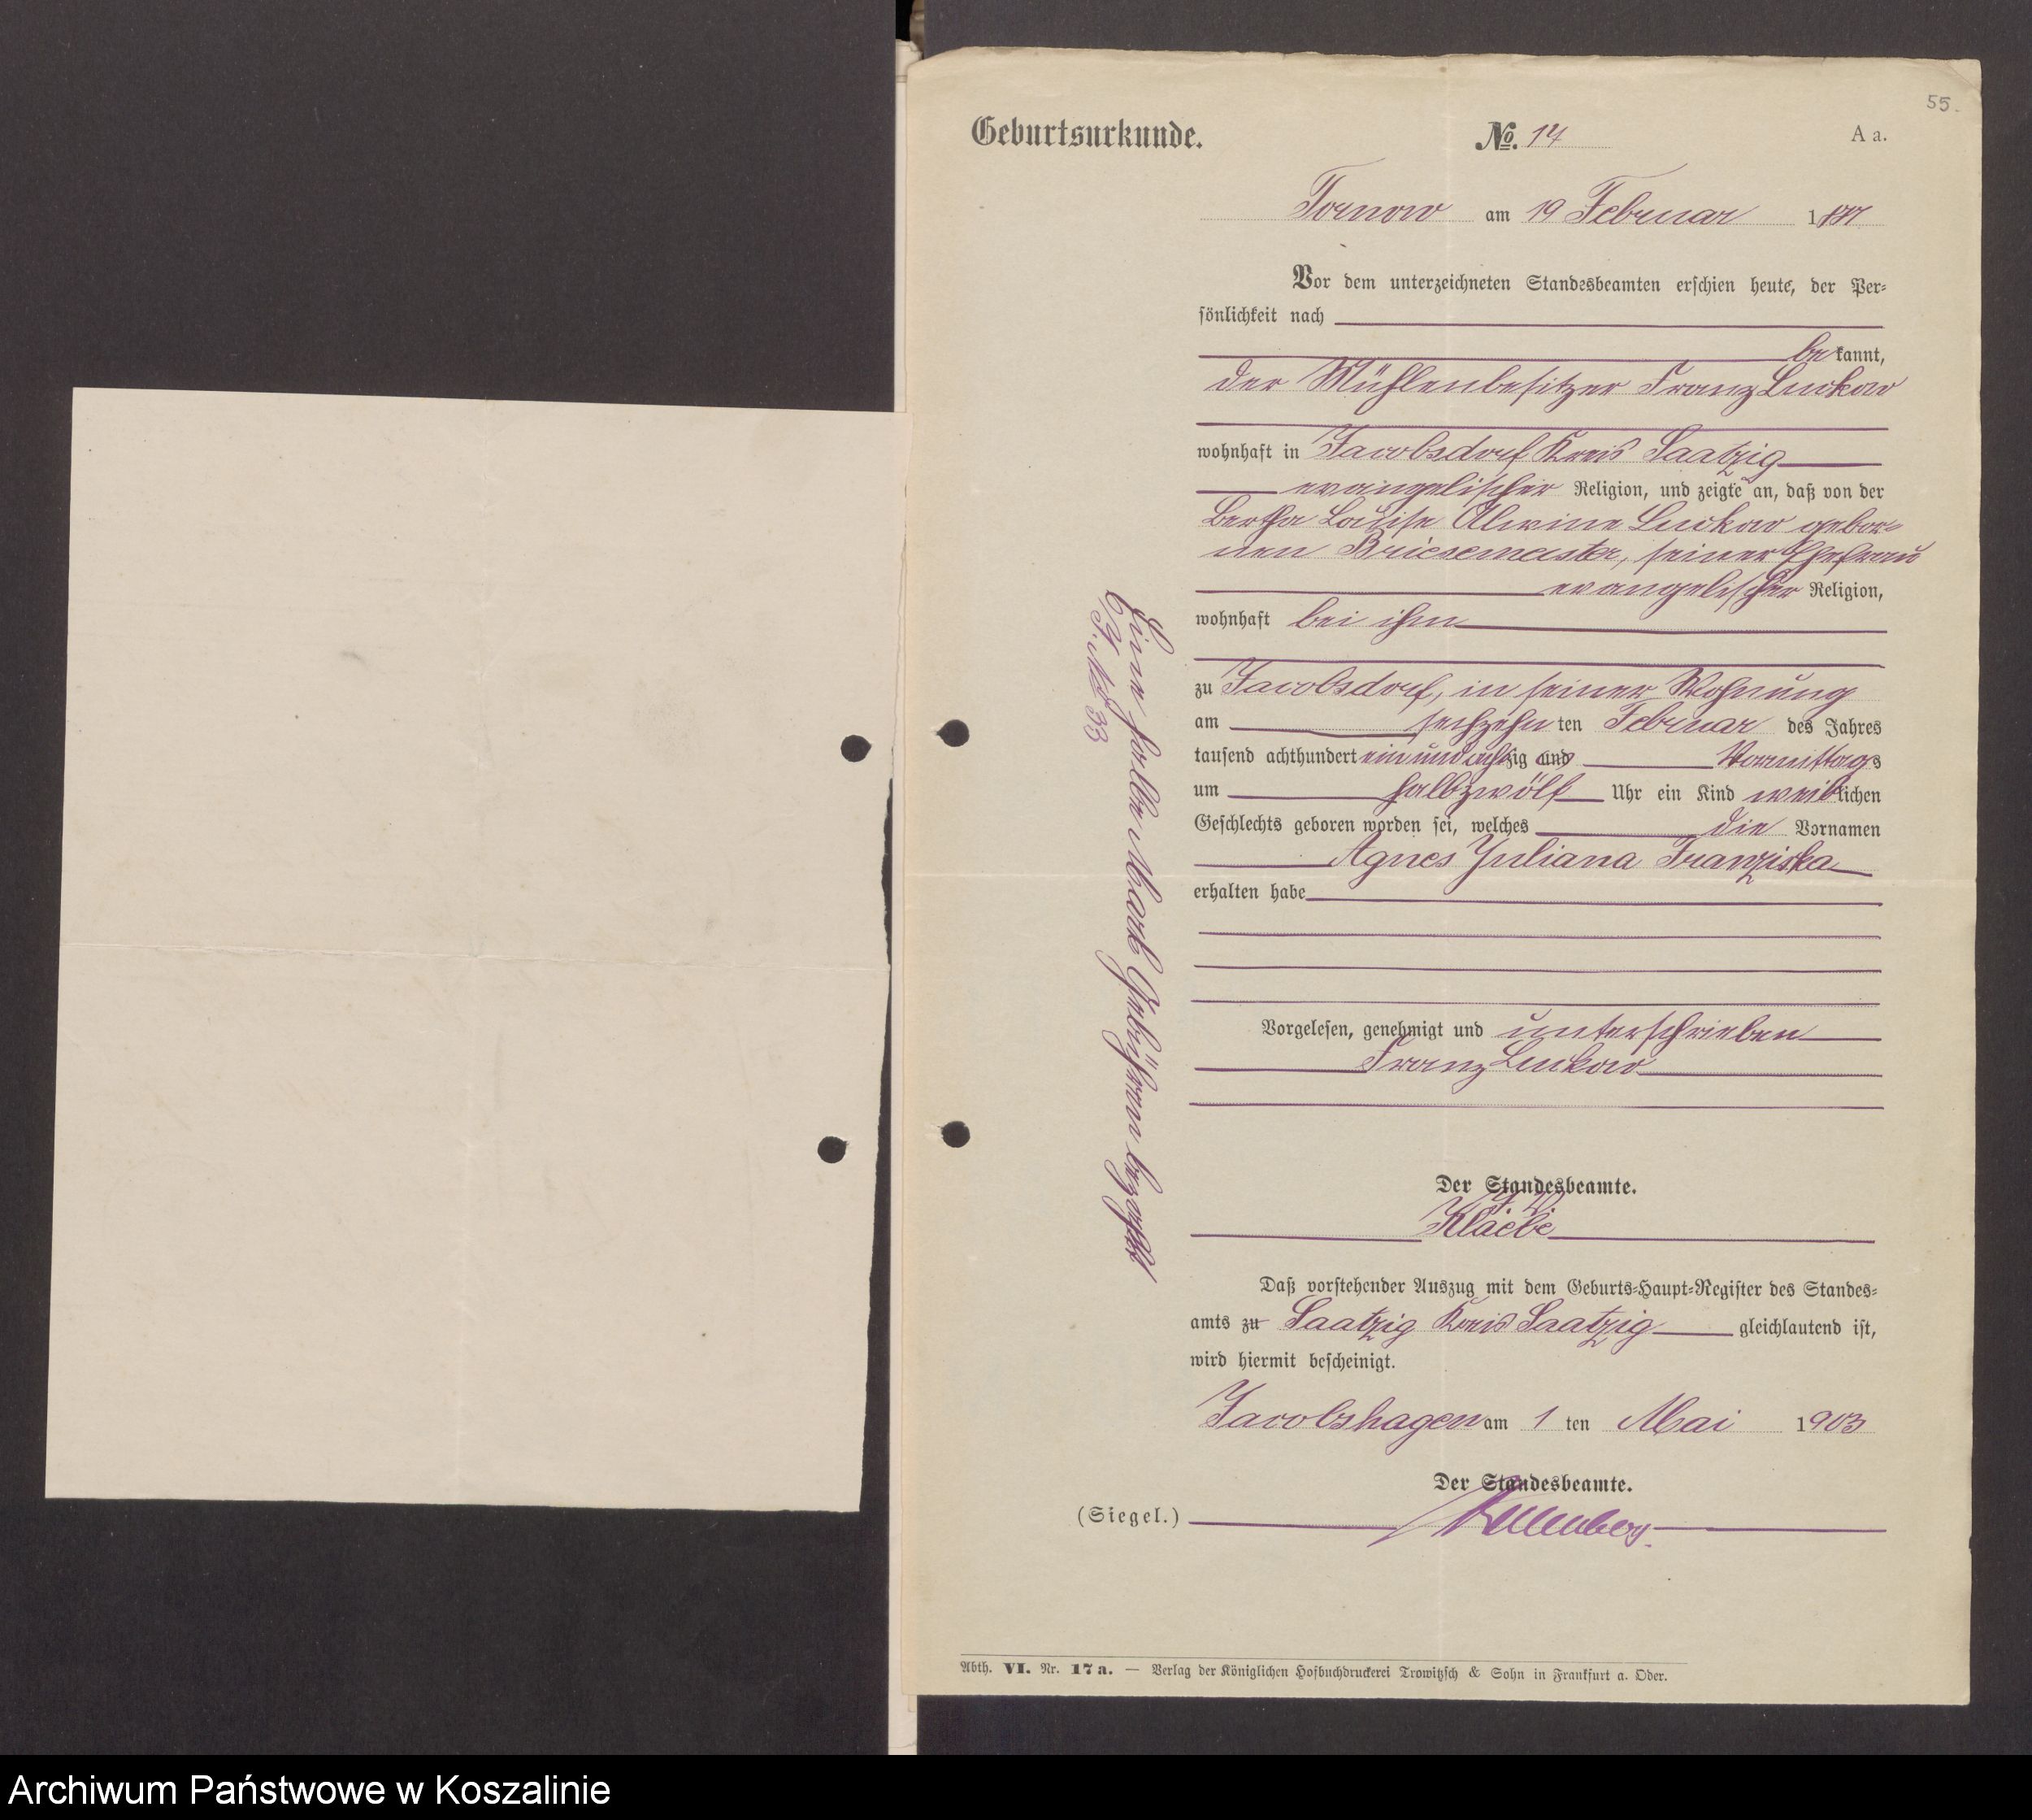 55.
Geburtsurkunde. No. 14 A a.
Tornow am 19 Februar 1881
Vor dem unterzeichneten Standesbeamten erschien heute, der Per-
sönlichkeit nach
bekannt,
der Mühlenbesitzer Franz Luckow
wohnhaft in Jacobsdorf Kreis Saatzig
evangelischer Religion, und zeigte an, daß von der
Bertha Louise Alwine Luckow gebor-
nen Briesemeister, seiner Ehefrau
evangelischer Religion,
wohnhaft bei ihm
zu Jacobsdorf, in seiner Wohnung
am sechzehnten Februar des Jahres
tausend achthundert ein und achtzig und Vormittags
um halbzwölf Uhr ein Kind weiblichen
Geschlechts geboren worden sei, welches die Vornamen
Agnes Juliana Franziska
erhalten habe
Vorgelesen, genehmigt und unterschrieben
Franz Luckow
Der Standesbeamte.
Klaebe
Daß vorstehender Auszug mit dem Geburts-Haupt-Register des Standes-
amts zu Saatzig Kreis Saatzig gleichlautend ist,
wird hiermit bescheinigt.
Jacobshagen am 1 ten Mai 1903
Der Standesbeamte.
(Siegel.)
Eine halbe Mark Gebühren bezahlt
J. No 33
Abth. VI. Nr. 17 a. — Verlag der Königlichen Hofbuchdruckerei Trowitzsch & Sohn in Frankfurt a. Oder.
Archiwum Państwowe w Koszalinie